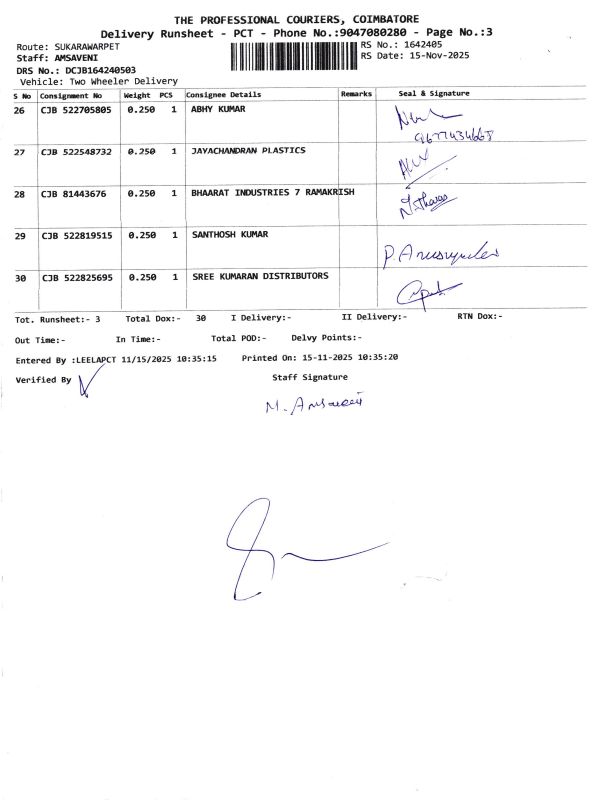 THE PROFESSIONAL COURIERS, COIMBATORE
Delivery Runsheet - PCT - Phone No.:9047080280 - Page No.:3
Route: SUKARAWARPET RS No.: 1642405
Staff: AMSAVENI RS Date: 15-Nov-2025
DRS No.: DCJB164240503
Vehicle: Two Wheeler Delivery
S No Consignment No Weight PCS Consignee Details Remarks Seal & Signature
26 CJB 522705805 0.250 1 ABHY KUMAR
9677434668
27 CJB 522548732 0.250 1 JAYACHANDRAN PLASTICS
28 CJB 81443676 0.250 1 BHAARAT INDUSTRIES 7 RAMAKRISH
29 CJB 522819515 0.250 1 SANTHOSH KUMAR
30 CJB 522825695 0.250 1 SREE KUMARAN DISTRIBUTORS
Tot. Runsheet:- 3 Total Dox:- 30 I Delivery:- II Delivery:- RTN Dox:-
Out Time:- In Time:- Total POD:- Delvy Points:-
Entered By :LEELAPCT 11/15/2025 10:35:15 Printed On: 15-11-2025 10:35:20
Verified By Staff Signature
M. Amsaveni